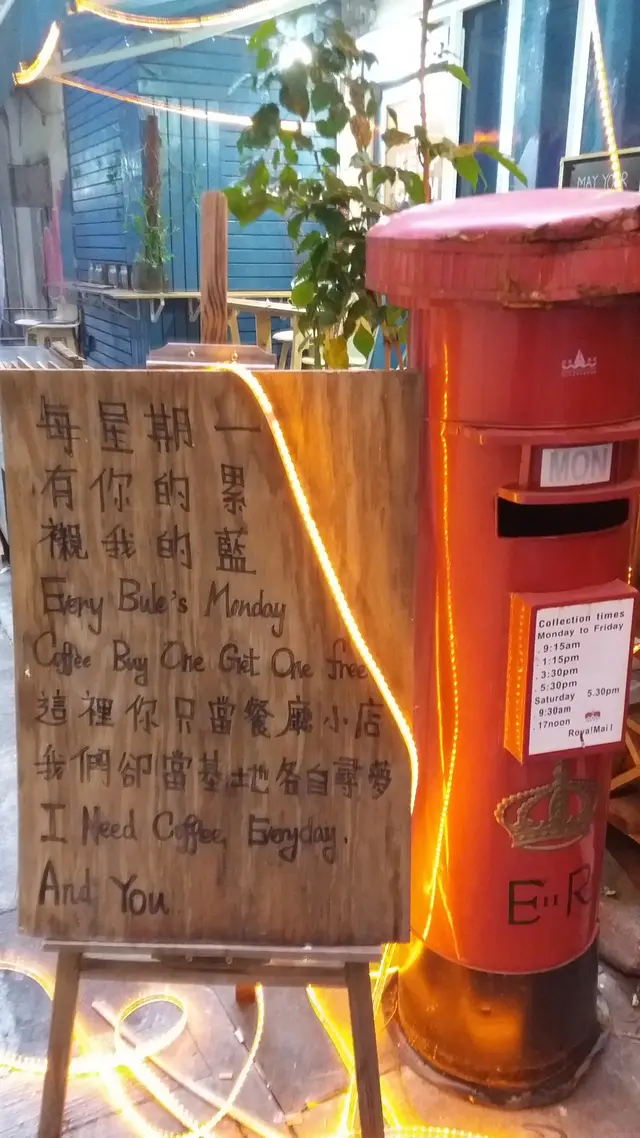 每星期一
有你的累
襯我的藍
Every Bule's Monday
Coffee Buy One Get One free
這裡你只當餐廳小店
我們卻當基地各自尋夢
I Need Coffee, Everyday.
And You
MAY YOUR
MON
Collection times
Monday to Friday
. 9:15am
. 1:15pm
. 3:30pm
. 5:30pm
Saturday 5.30pm
. 9:30am
.17noon
RoyalMail
E II R